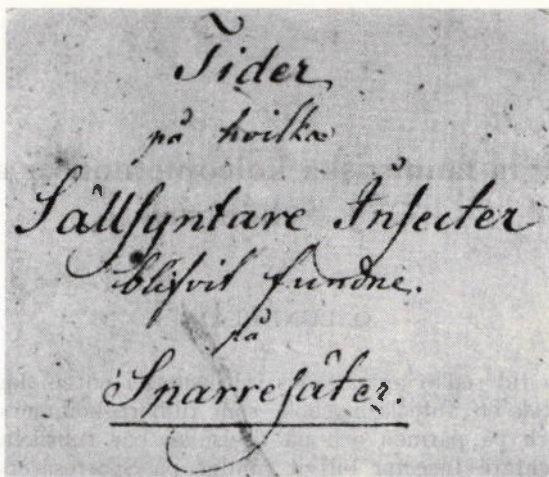 Tider
på hvilka
Sällsyntare Insecter
blifvit fundne.
på
Sparresäter.